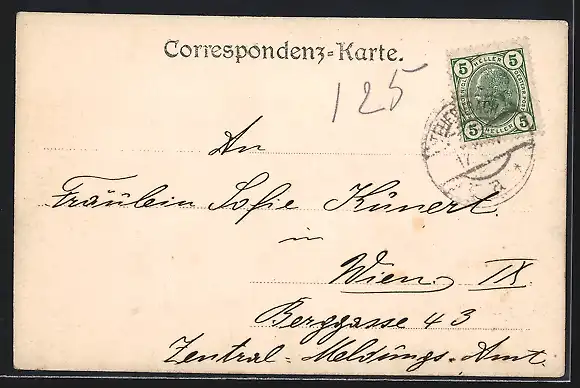 Correspondenz-Karte.
125
5 HELLER 5
5 HELLER 5
An
Fräulein Sofie Künert.
in
Wien IX
Berggasse 43
Zentral-Meldungs-Amt.